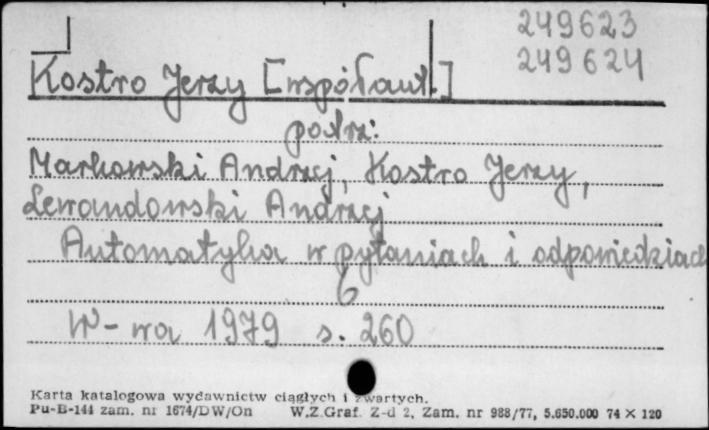 249623
249624
Kostro Jerzy [współaut.]
patrz:
Markowski Andrzej, Kostro Jerzy,
Lewandowski Andrzej
Automatyka w pytaniach i odpowiedziach
W-wa 1979 s. 260
Karta katalogowa wydawnictw ciągłych i zwartych.
Pu-B-144 zam. nr 1674/DW/On W.Z.Graf. Z-d 2, Zam. nr 988/77, 5.650.000 74 × 120